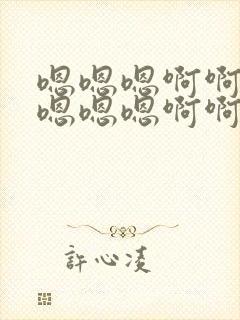 嗯嗯嗯啊啊
嗯嗯嗯啊啊
許心凌